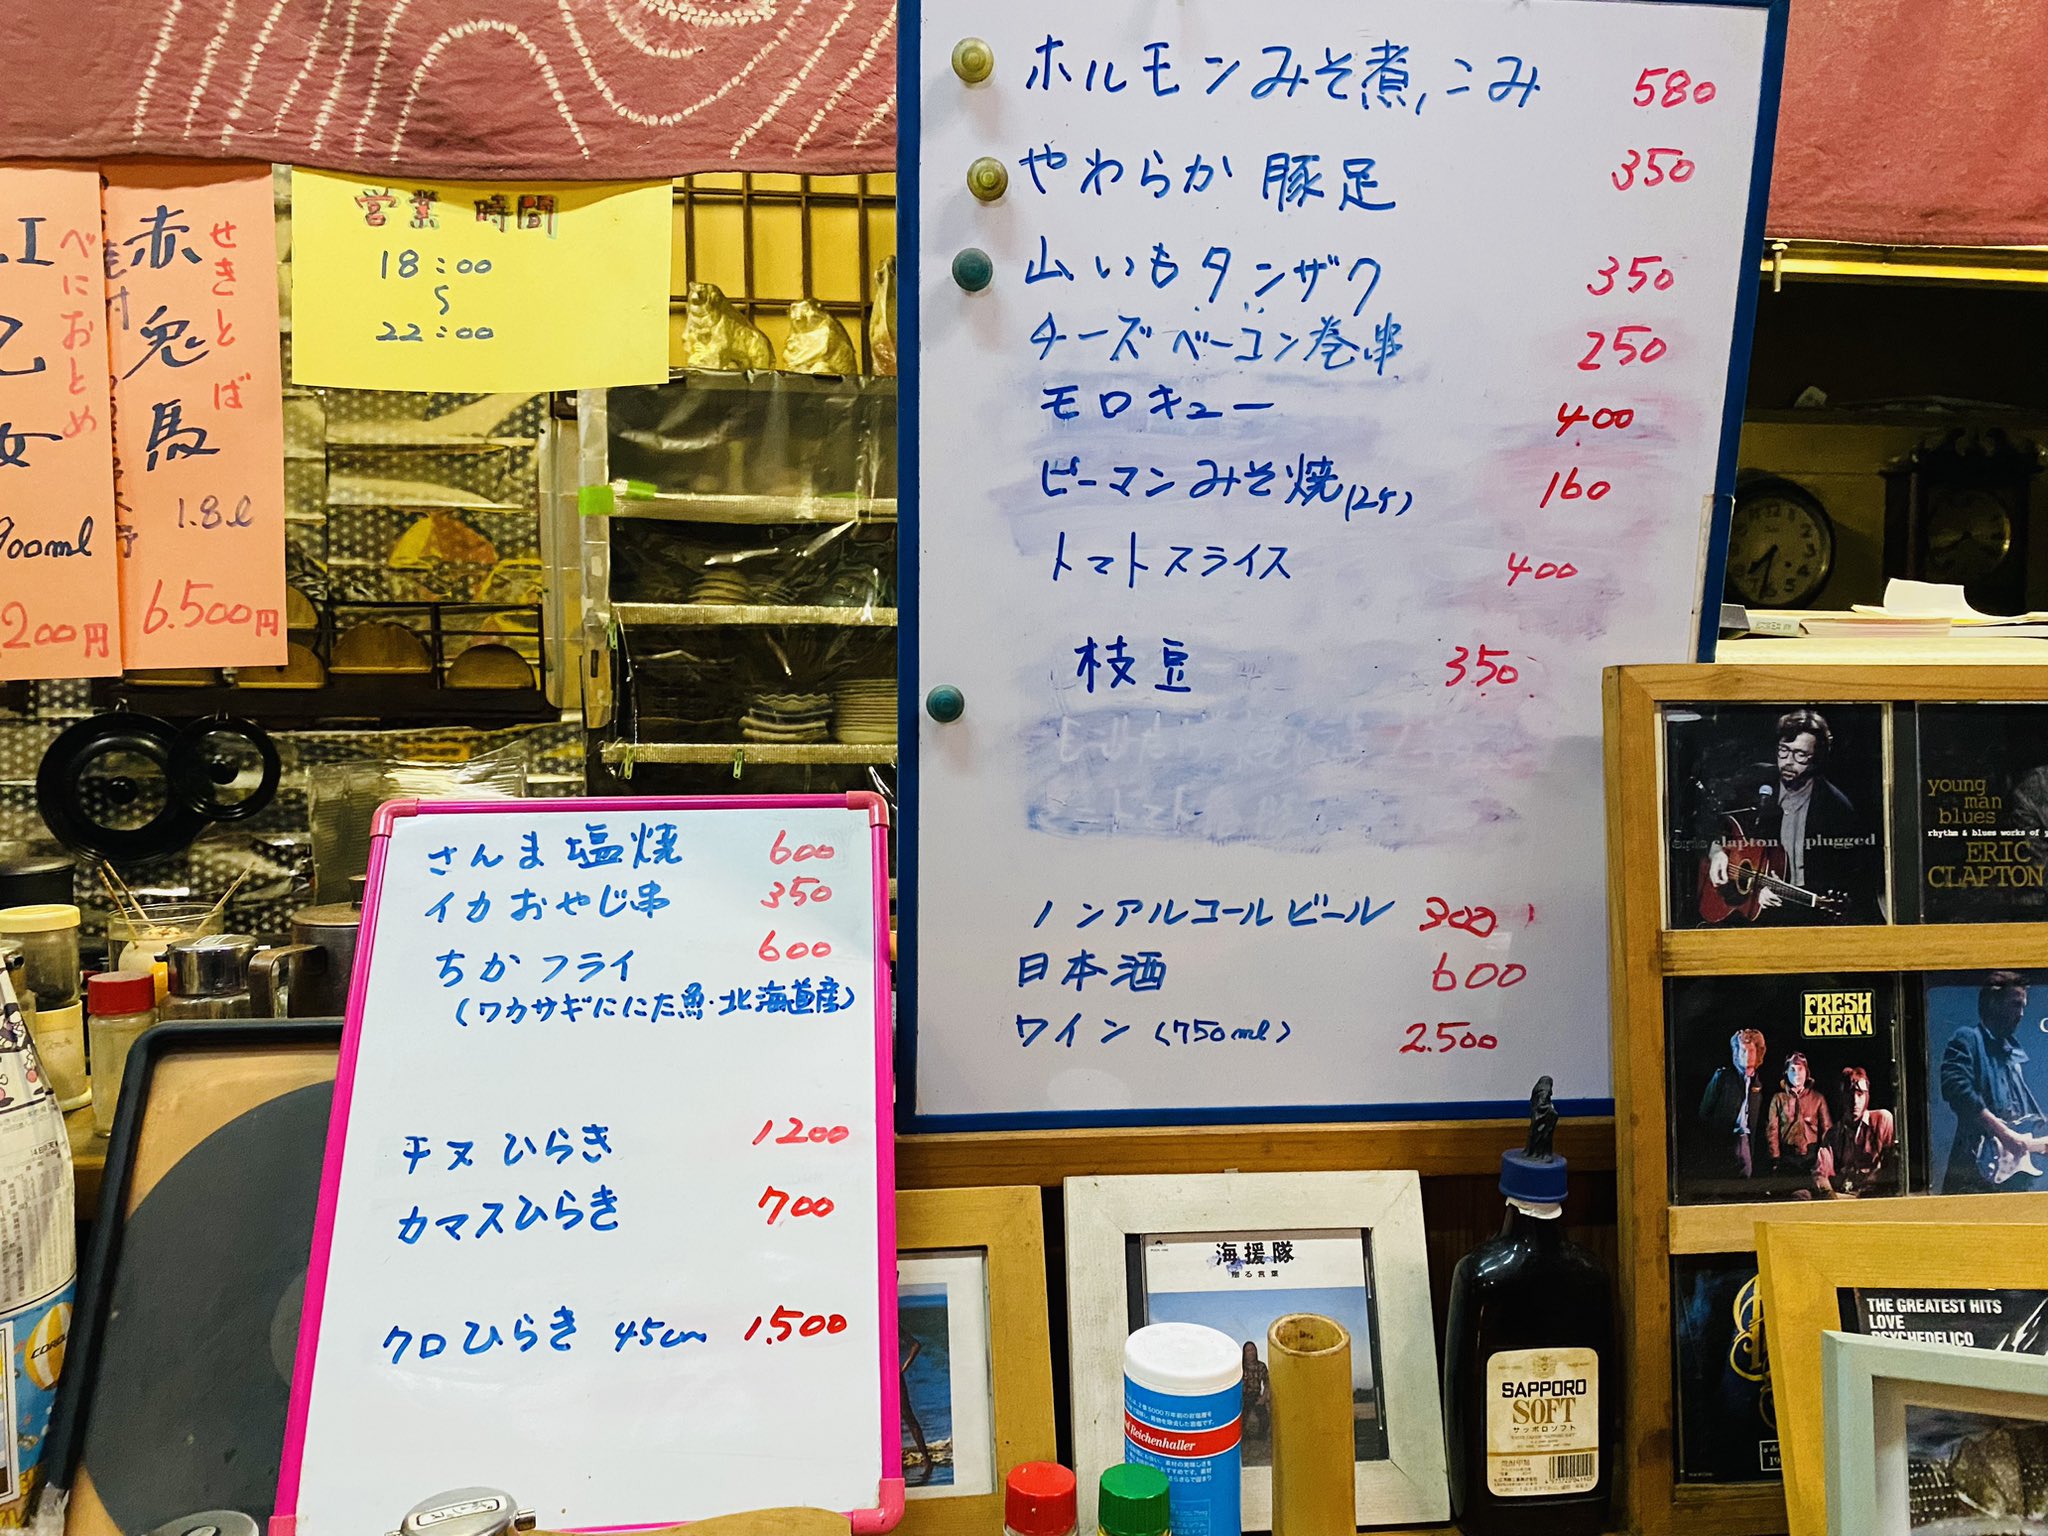 せきとば
赤兎馬
1.8ℓ
6.500円
べにおとめ
乙女
900ml
200円
営業時間
18:00
〜
22:00
ホルモンみそ煮こみ 580
やわらか豚足 350
山いもタンザク 350
チーズベーコン巻串 250
モロキュー 400
ピーマンみそ焼(2ヶ) 160
トマトスライス 400
枝豆 350
ノンアルコールビール 300
日本酒 600
ワイン(750ml) 2.500
さんま塩焼 600
イカおやじ串 350
ちかフライ 600
(ワカサギににた魚・北海道産)
チヌひらき 1200
カマスひらき 700
クロひらき 45cm 1.500
eric clapton unplugged
young
man
blues
rhythm & blues works of
ERIC
CLAPTON
FRESH
CREAM
海援隊
贈る言葉
THE GREATEST HITS
LOVE
PSYCHEDELICO
Reichenhaller
SAPPORO
SOFT
サッポロソフト